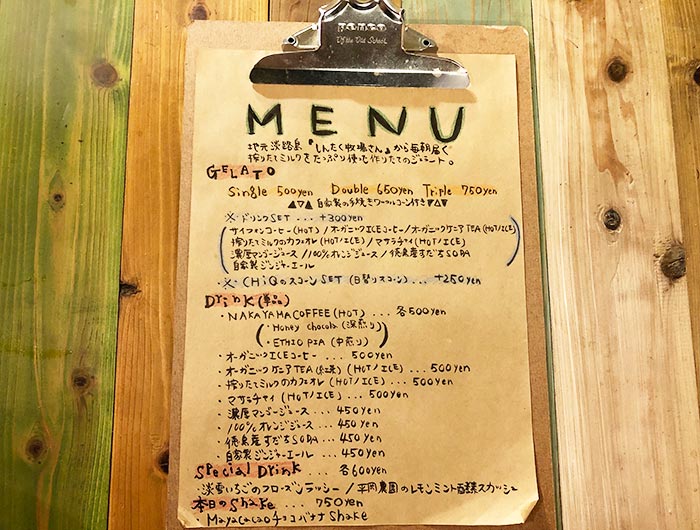 MENU
地元淡路島『しんたく牧場さん』から毎朝届く
搾りたてミルクをたっぷり使った作りたてのジェラート。
GELATO
Single 500yen Double 650yen Triple 750yen
▲▽▲ 自家製の手焼きワッフルコーン付き ▼△▼
※ ドリンクSET ... +300yen
サイフォンコーヒー(HOT) / オーガニックICEコーヒー / オーガニックケニアTEA(HOT/ICE)
搾りたてミルクのカフェオレ(HOT/ICE) / マサラチャイ(HOT/ICE)
濃厚マンゴージュース / 100%オレンジジュース / 徳島産すだちSODA
自家製ジンジャーエール
※ CHIQのスコーンSET (日替りスコーン) ... +250yen
Drink(単品)
・NAKAYAMA COFFEE (HOT) ... 各500yen
・Honey chocola (深煎り)
・ETHIOPIA (中煎り)
・オーガニックICEコーヒー ... 500yen
・オーガニックケニアTEA(紅茶) (HOT/ICE) ... 500yen
・搾りたてミルクのカフェオレ (HOT/ICE) ... 500yen
・マサラチャイ (HOT/ICE) ... 500yen
・濃厚マンゴージュース ... 450yen
・100%オレンジジュース ... 450yen
・徳島産すだちSODA ... 450yen
・自家製ジンジャーエール ... 450yen
Special Drink ... 各600yen
・淡雪いちごのフローズンラッシー / 平岡農園のレモンミント酵素スカッシュ
本日のShake ... 750yen
・Mayacacaoチョコバナナ Shake